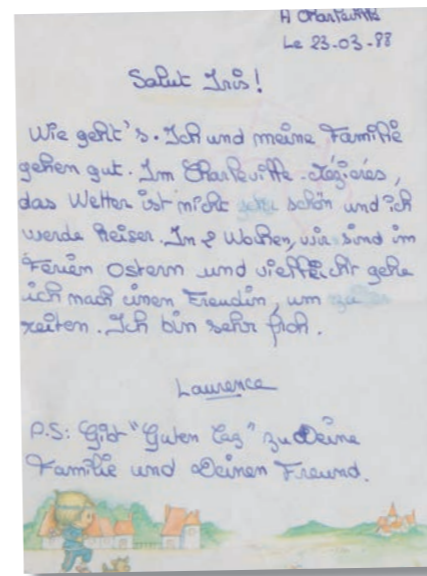 A Charleville
Le 23-03-88
Salut Iris!
Wie geht's. Ich und meine Familie
gehen gut. Im Charleville-Mézières,
das Wetter ist nicht sehr schön und ich
werde heiser. In 2 Wochen, wir sind im
Ferien Ostern und vielleicht gehe
ich nach einen Freudin, um zu
reiten. Ich bin sehr froh.
Laurence
P.S: Gibt "Guten Tag" zu Deine
Familie und Deinen Freund.